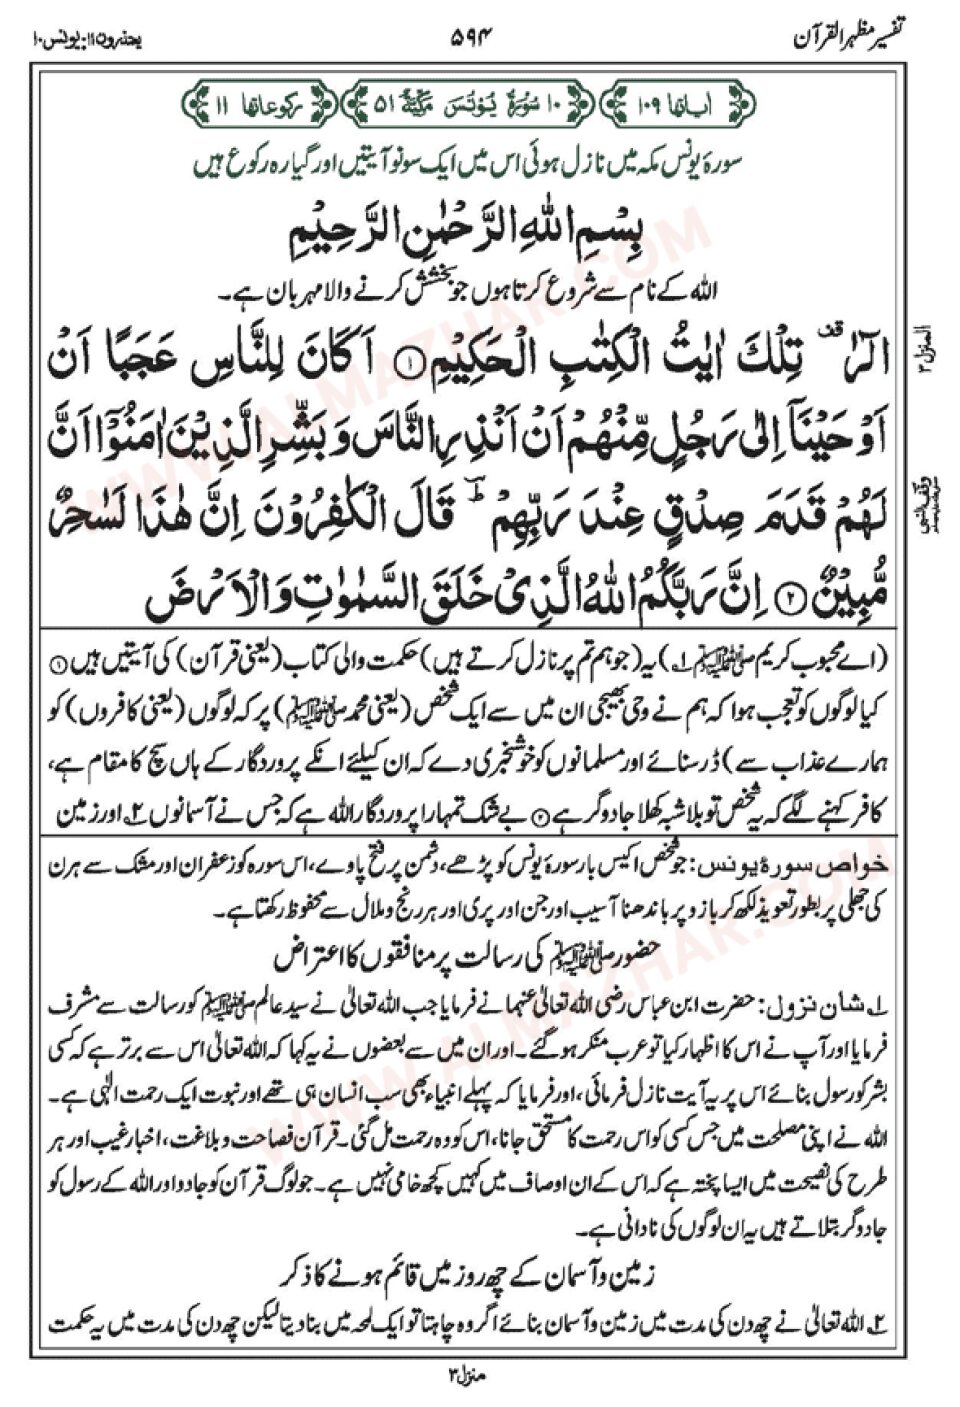 تفسیر مظہر القرآن
۵۹۴
یعتذرون ۱۱: یونس ۱۰
اٰیاتہا ۱۰۹
۱۰ سُوْرَۃُ یُوْنُسَ مَکِّیَّۃٌ ۵۱
رکوعاتہا ۱۱
سورۂ یونس مکہ میں نازل ہوئی اس میں ایک سو نو آیتیں اور گیارہ رکوع ہیں
بِسْمِ اللّٰهِ الرَّحْمٰنِ الرَّحِیْمِ
اللہ کے نام سے شروع کرتا ہوں جو بخشش کرنے والا مہربان ہے۔
الٓرٰ قف تِلْكَ اٰیٰتُ الْكِتٰبِ الْحَكِیْمِ ۱ اَكَانَ لِلنَّاسِ عَجَبًا اَنْ
المنزل ۳
اَوْحَیْنَاۤ اِلٰی رَجُلٍ مِّنْهُمْ اَنْ اَنْذِرِ النَّاسَ وَبَشِّرِ الَّذِیْنَ اٰمَنُوْۤا اَنَّ
لَهُمْ قَدَمَ صِدْقٍ عِنْدَ رَبِّهِمْ ؕ قَالَ الْكٰفِرُوْنَ اِنَّ هٰذَا لَسٰحِرٌ
مُّبِیْنٌ ۲ اِنَّ رَبَّكُمُ اللّٰهُ الَّذِیْ خَلَقَ السَّمٰوٰتِ وَالْاَرْضَ
(اے محبوب کریم ﷺ ۱؎) یہ (جو ہم تم پر نازل کرتے ہیں) حکمت والی کتاب (یعنی قرآن) کی آیتیں ہیں ۱
کیا لوگوں کو تعجب ہوا کہ ہم نے وحی بھیجی ان میں سے ایک شخص (یعنی محمد ﷺ) پر کہ لوگوں (یعنی کافروں) کو
ہمارے عذاب سے) ڈر سنائے اور مسلمانوں کو خوشخبری دے کہ ان کیلئے انکے پروردگار کے ہاں سچ کا مقام ہے،
کافر کہنے لگے کہ یہ شخص تو بلاشبہ کھلا جادوگر ہے ۲ بے شک تمہارا پروردگار اللہ ہے کہ جس نے آسمانوں ۲؎ اور زمین
خواص سورۂ یونس: جو شخص اکیس بار سورۂ یونس کو پڑھے، دشمن پر فتح پاوے، اس سورہ کو زعفران اور مشک سے ہرن
کی جھلی پر بطور تعویذ لکھ کر بازو پر باندھنا آسیب اور جن اور پری اور ہر رنج و ملال سے محفوظ رکھتا ہے۔
حضور ﷺ کی رسالت پر منافقوں کا اعتراض
۱؎ شان نزول: حضرت ابن عباس رضی اللہ تعالیٰ عنہما نے فرمایا جب اللہ تعالیٰ نے سید عالم ﷺ کو رسالت سے مشرف
فرمایا اور آپ نے اس کا اظہار کیا تو عرب منکر ہو گئے۔ اور ان میں سے بعضوں نے یہ کہا کہ اللہ تعالیٰ اس سے برتر ہے کہ کسی
بشر کو رسول بنائے اس پر یہ آیت نازل فرمائی، اور فرمایا کہ پہلے انبیاء بھی سب انسان ہی تھے اور نبوت ایک رحمت الٰہی ہے۔
اللہ نے اپنی مصلحت میں جس کسی کو اس رحمت کا مستحق جانا، اس کو وہ رحمت مل گئی۔ قرآن فصاحت و بلاغت، اخبار غیب اور ہر
طرح کی نصیحت میں ایسا پختہ ہے کہ اس کے ان اوصاف میں کہیں کچھ خامی نہیں ہے۔ جو لوگ قرآن کو جادو اور اللہ کے رسول کو
جادوگر بتلاتے ہیں یہ ان لوگوں کی نادانی ہے۔
زمین و آسمان کے چھ روز میں قائم ہونے کا ذکر
۲؎ اللہ تعالیٰ نے چھ دن کی مدت میں زمین و آسمان بنائے اگر وہ چاہتا تو ایک لمحہ میں بنا دیتا لیکن چھ دن کی مدت میں یہ حکمت
منزل ۳
WWW.ALMAZHAR.COM
WWW.ALMAZHAR.COM